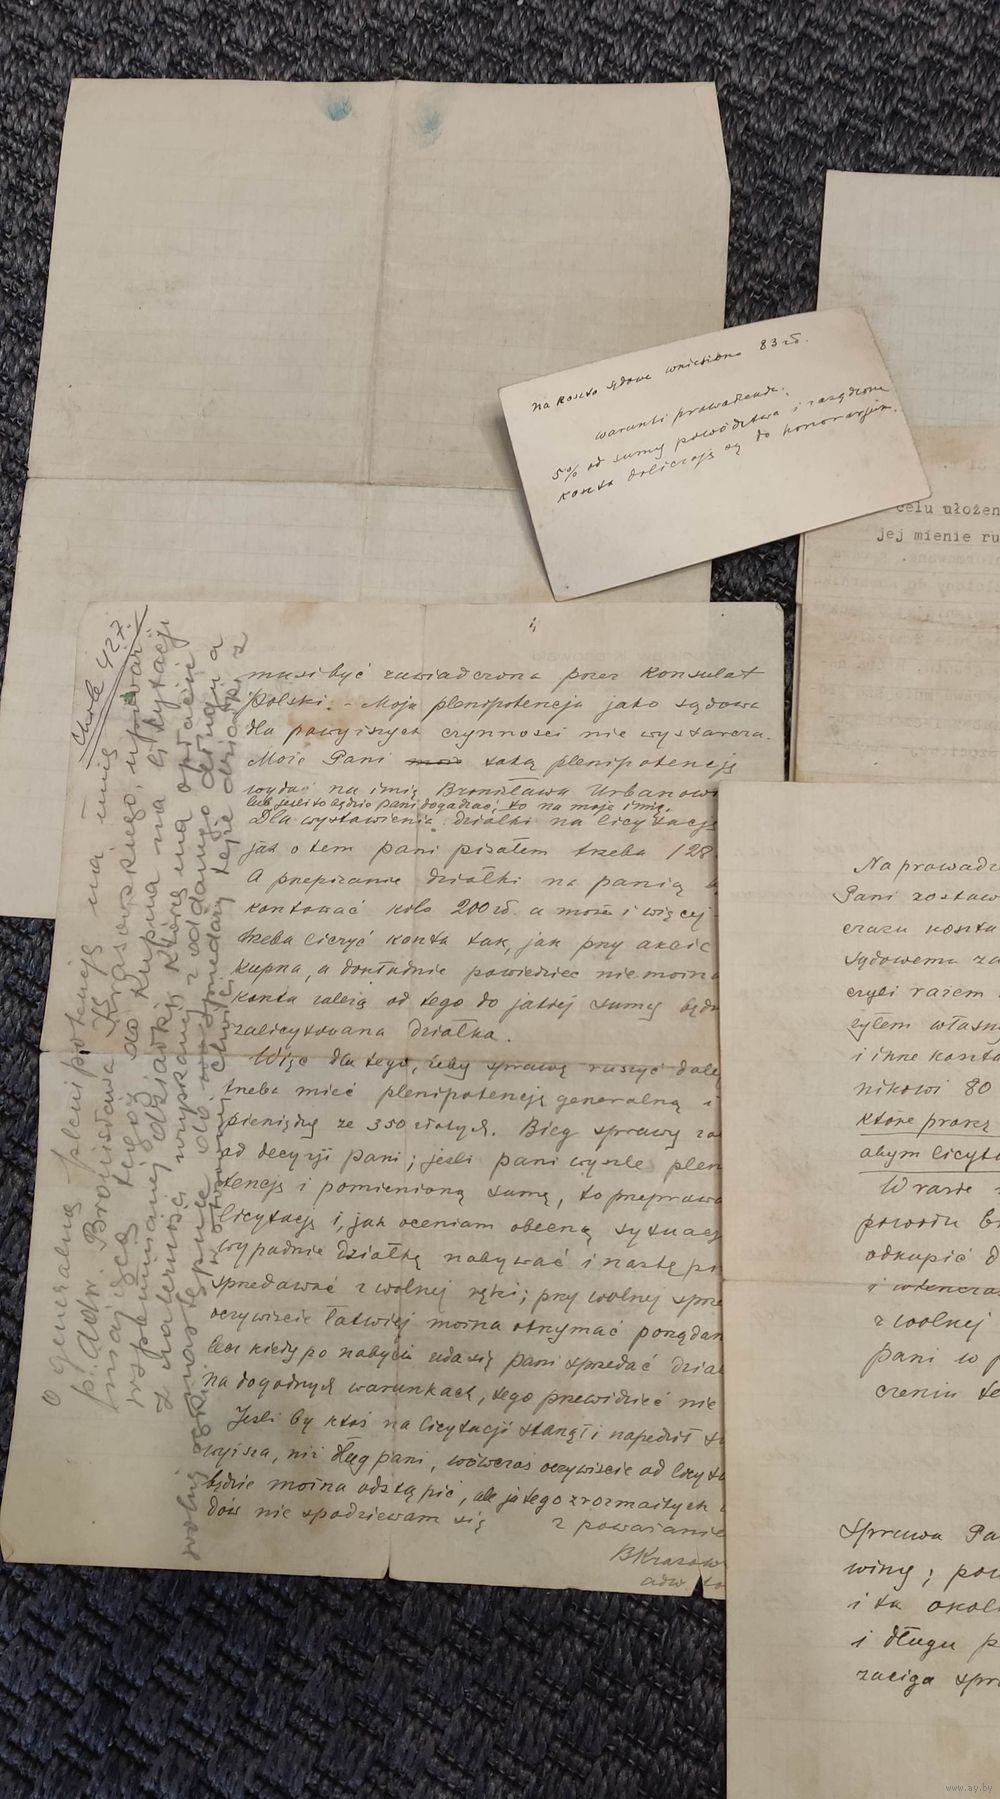 na koszta sądowe wniesiono 83 zł.
warunki prowadzenia:
5% od sumy powództwa i zasądzone
koszta doliczają się do honorarjum.
celu ułożen
jej mienie ru
4
musi być zaświadczona przez Konsulat
Polski. - Moja plenipotencja jako sądowa
dla powyższych czynności nie wystarcza.
Może Pani taką plenipotencję
wydać na imię Bronisława Urbanow
lub jeśli to będzie pani dogadzać, to na moje imię.
Dla wystawienia działki na licytację
jak o tem pani pisałem trzeba 128
A przepisanie działki na panią
kontować koło 200 zł. a może i więcej
trzeba liczyć koszta tak, jak przy akcie
kupna, a dokładnie powiedzieć nie można
koszta zależą od tego do jakiej sumy będz
zalicytowana działka.
Więc dla tego, żeby sprawę ruszyć dalej
trzeba mieć plenipotencję generalną i
pieniędzy ze 350 złotych. Bieg sprawy za
od decyzji pani; jeśli pani wyśle plen
tencję i pomienioną sumę, to przeprawa
licytację i, jak oceniam obecną sytuację
wypadnie działkę nabywać i następ
sprzedawać z wolnej ręki; przy wolnej sprze
oczywiście łatwiej można otrzymać pożądan
lecz kiedy po nabyciu uda się pani sprzedać dział
na dogodnych warunkach, tego przewidzieć nie
Jeśli by ktoś na licytacji stanął i napędził su
wyższą, niż dług pani, wówczas oczywiście od licyta
będzie można odstąpić, ale ja tego z rozmaitych
dów nie spodziewam się z poważanie
BKrasow
adw.
Chode 427.
O generalną plenipotencję na imię
p. adw. Bronisława Krasowskiego, upoważ
niającą tegoż do kupna na licytacji
wspominanej działki, którą ma opłacić
z należności wyskanej z oddanego długu a
następnie do sprzedaży tejże działki z
wolnej ręki
Na prowadz
Pani zostaw
czasu koszta
Sądowemu za
czyli razem
żyłem własn
i inne koszta
nikowi 80
które proszę
abym licyta
W razie
powodu br
odkupić d
i wtenczas
z wolnej
pani w p
czeniu te
Sprawa Pa
winy; pow
i ta okol
i długu p
zaciąga spra
www.ay.by